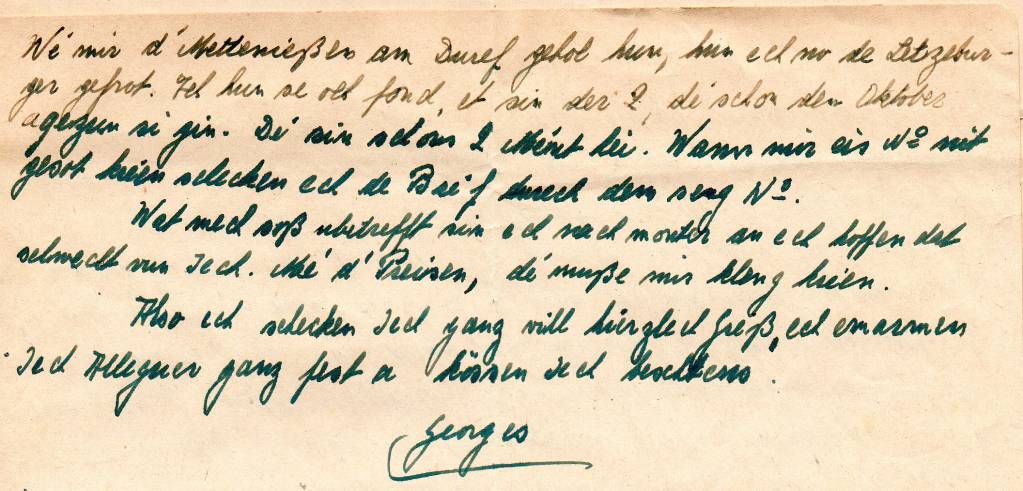 Wé mir d'Mettenießen am Duref gehol hun, hun ech no de Letzebur-
ger gefrot. Ich hun se och fond, et sin der 2, dé schon den Oktober
agezun si gin. Dé sin schons 2 Ménet hei. Wann mir eis Nº mit
gesot kréien schecken ech de Bréf durech dem seng Nº.
Wat mech soß ubetrefft sin ech nach monter an ech hoffen dat
selwecht vun Iech. Mé d'Preisen, dé muße mir kleng kréien.
Also ech schecken Iech ganz vill hierzlech Greß, ech emarmen
Iech Alleguer ganz fest a kössen Iech beschtens.
Georges